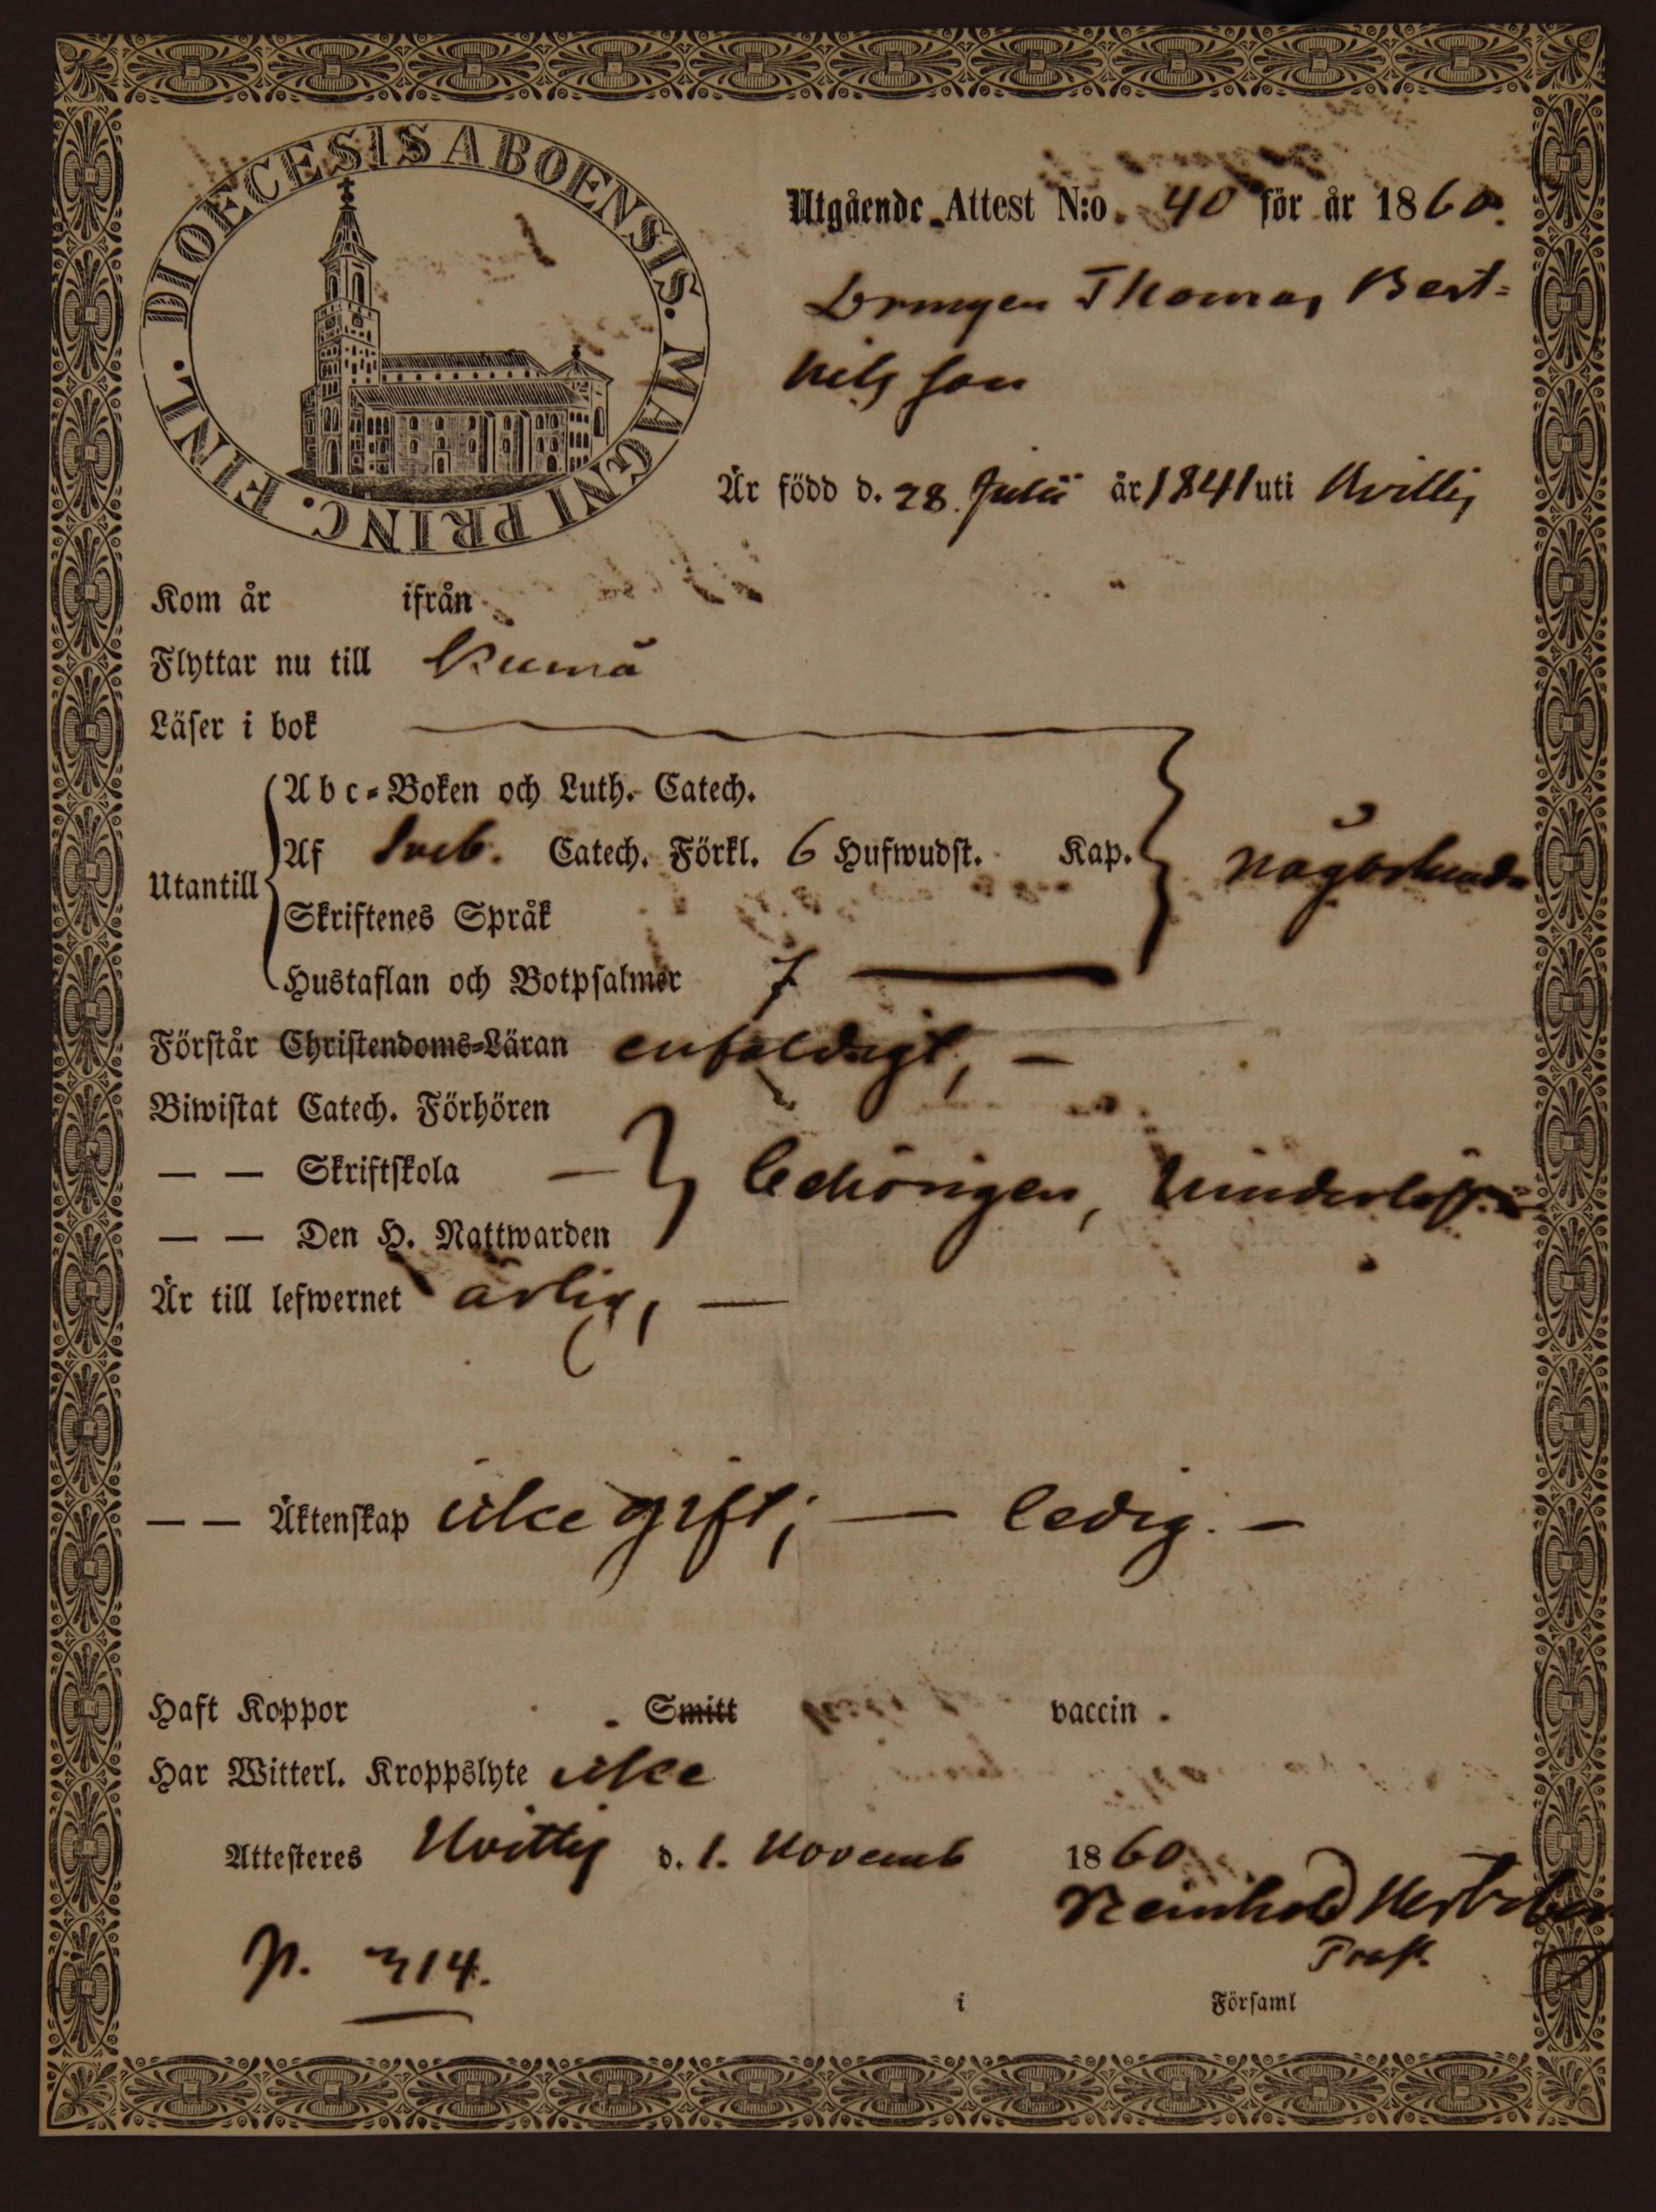 DIOECESIS ABOENSIS. MAGNI PRINC. FINL.
Utgående Attest N:o 40 för år 1860.
Drengen Thomas Bert=
nils son
Är född d. 28. Julii år 1841 uti Hvittis
Kom år ifrån
Flyttar nu till Kumo
Läser i bok
Abc=Boken och Luth. Catech.
Utantill Af Sveb. Catech. Förkl. 6 Hufwudst. Kap. någorlunda
Skriftenes Språk
Hustaflan och Botpsalmer 7 —
Förstår Christendoms=Läran enfaldigt, —
Biwistat Catech. Förhören
— — Skriftskola — behörigen,
— — Den H. Nattwarden
Är till lefwernet ärlig, —
— — Äktenskap icke gift; — ledig. —
Haft Koppor . Smitt vaccin .
Har Witterl. Kroppslyte icke
Attesteres Hvittis d. 1. Novemb 1860
Reinhold
Prost.
p. 314.
i Församl